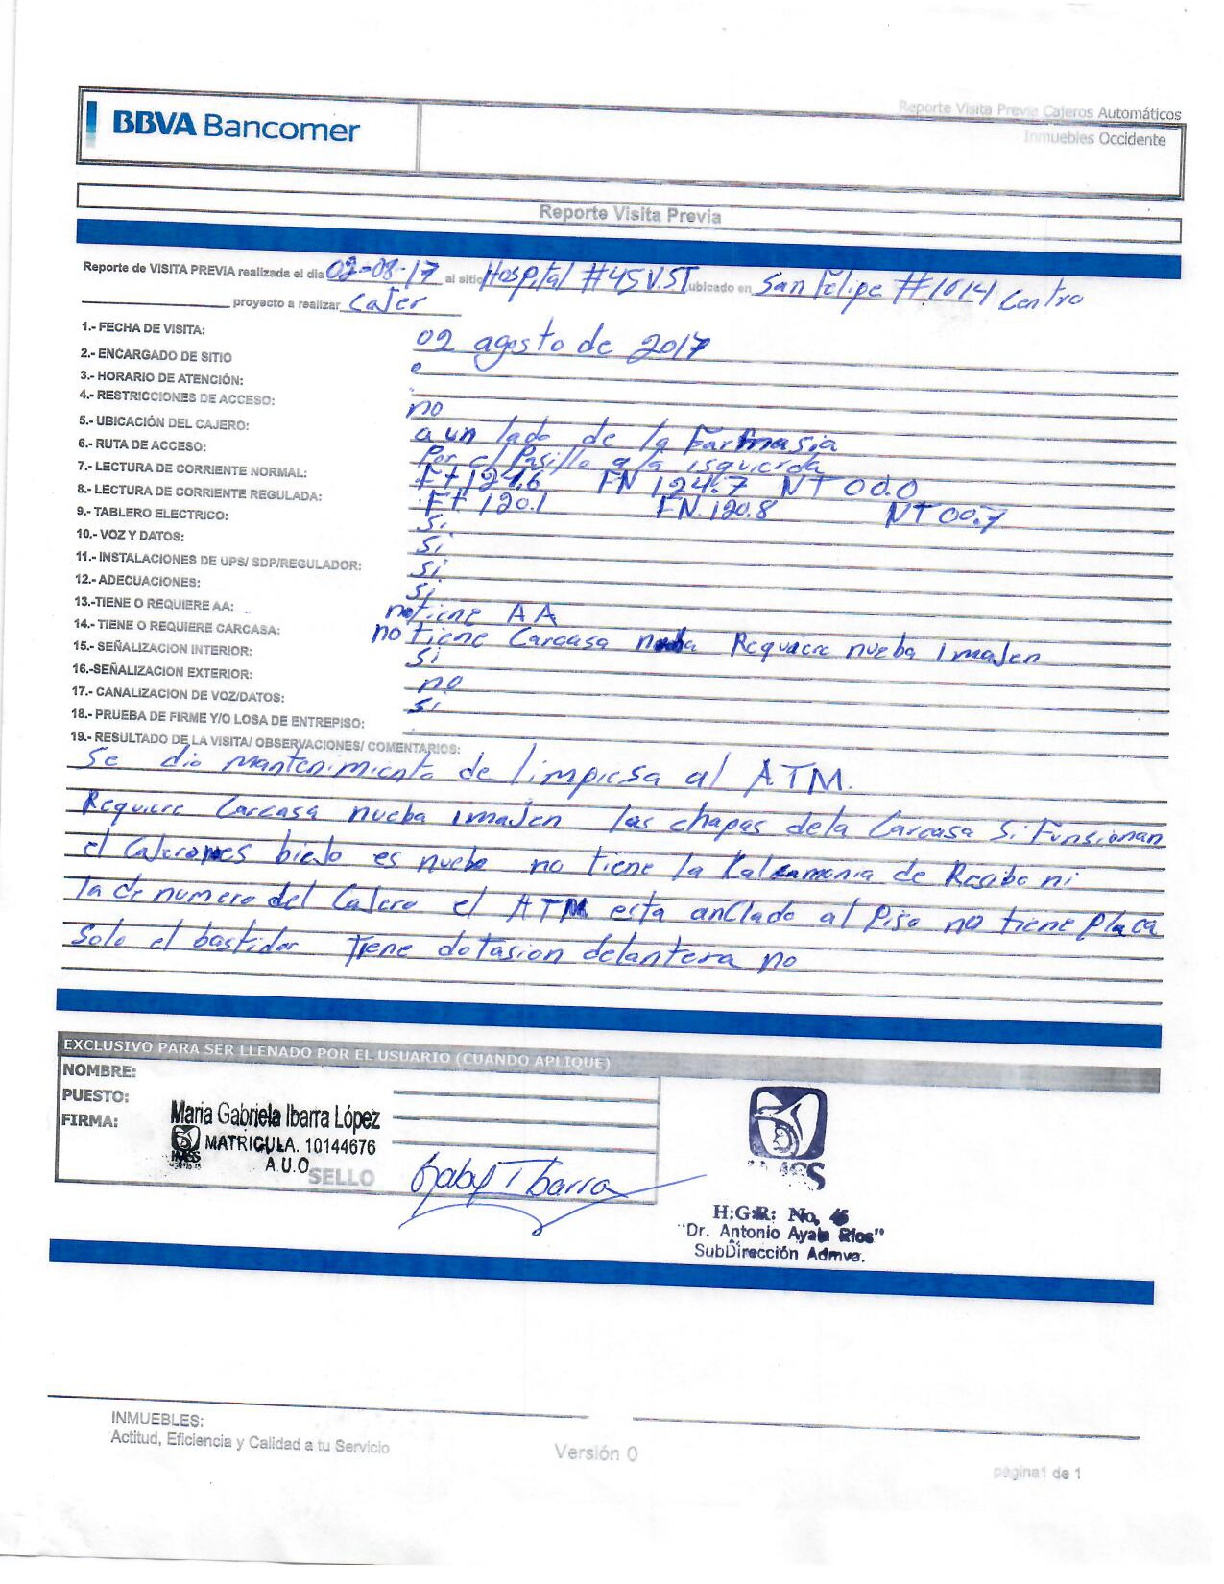 BBVA Bancomer
Reporte Visita Previa Cajeros Automáticos
Inmuebles Occidente
Reporte Visita Previa
Reporte de VISITA PREVIA realizada el dia 02-08-17 al sitio Hospital #45 V.ST ubicado en San Felipe #1014 Centro
proyecto a realizar Cajer
1.- FECHA DE VISITA: 02 agosto de 2017
2.- ENCARGADO DE SITIO
3.- HORARIO DE ATENCIÓN:
4.- RESTRICCIONES DE ACCESO: no
5.- UBICACIÓN DEL CAJERO: a un lado de la Farmasia
6.- RUTA DE ACCESO: Por el Pasillo a la isquierda
7.- LECTURA DE CORRIENTE NORMAL: Ft 124.6 FN 124.7 NT 00.0
8.- LECTURA DE CORRIENTE REGULADA: Ft 120.1 FN 120.8 NT 00.7
9.- TABLERO ELECTRICO: Si
10.- VOZ Y DATOS: Si
11.- INSTALACIONES DE UPS/ SDP/REGULADOR: Si
12.- ADECUACIONES: Si
13.-TIENE O REQUIERE AA: no tiene AA
14.- TIENE O REQUIERE CARCASA: no tiene Carcasa Requiere nueba imajen
15.- SEÑALIZACION INTERIOR: Si
16.-SEÑALIZACION EXTERIOR: no
17.- CANALIZACION DE VOZ/DATOS: Si
18.- PRUEBA DE FIRME Y/O LOSA DE ENTREPISO:
19.- RESULTADO DE LA VISITA/ OBSERVACIONES/ COMENTARIOS:
Se dio mantenimiento de limpiesa al ATM.
Requiere Carcasa nueba imajen las chapas dela Carcasa Si Funsionan
el es biejo es nuebo no tiene la Kalcamonia de Resibo ni
la de numero del Cajero el ATM esta anclado al Piso no tiene placa
Solo el bastidor tiene dotasion delantera no
EXCLUSIVO PARA SER LLENADO POR EL USUARIO (CUANDO APLIQUE)
NOMBRE:
PUESTO:
FIRMA:
Maria Gabriela Ibarra López
MATRICULA. 10144676
A.U.O
SELLO
Gaby Ibarra
IMSS
H.G.R. No. 45
"Dr. Antonio Ayala Rios"
SubDirección Admva.
INMUEBLES:
Actitud, Eficiencia y Calidad a tu Servicio
Versión 0
página1 de 1